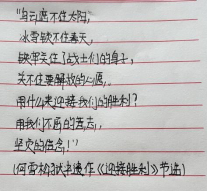 "乌云遮不住太阳，
冰雪锁不住春天，
铁牢关住了战士们的身子，
关不住要解放的心愿。
用什么来迎接我们的胜利？
用我们不屈的意志，
坚贞的信念！"
(何雪松狱中遗作《迎接胜利》节选)